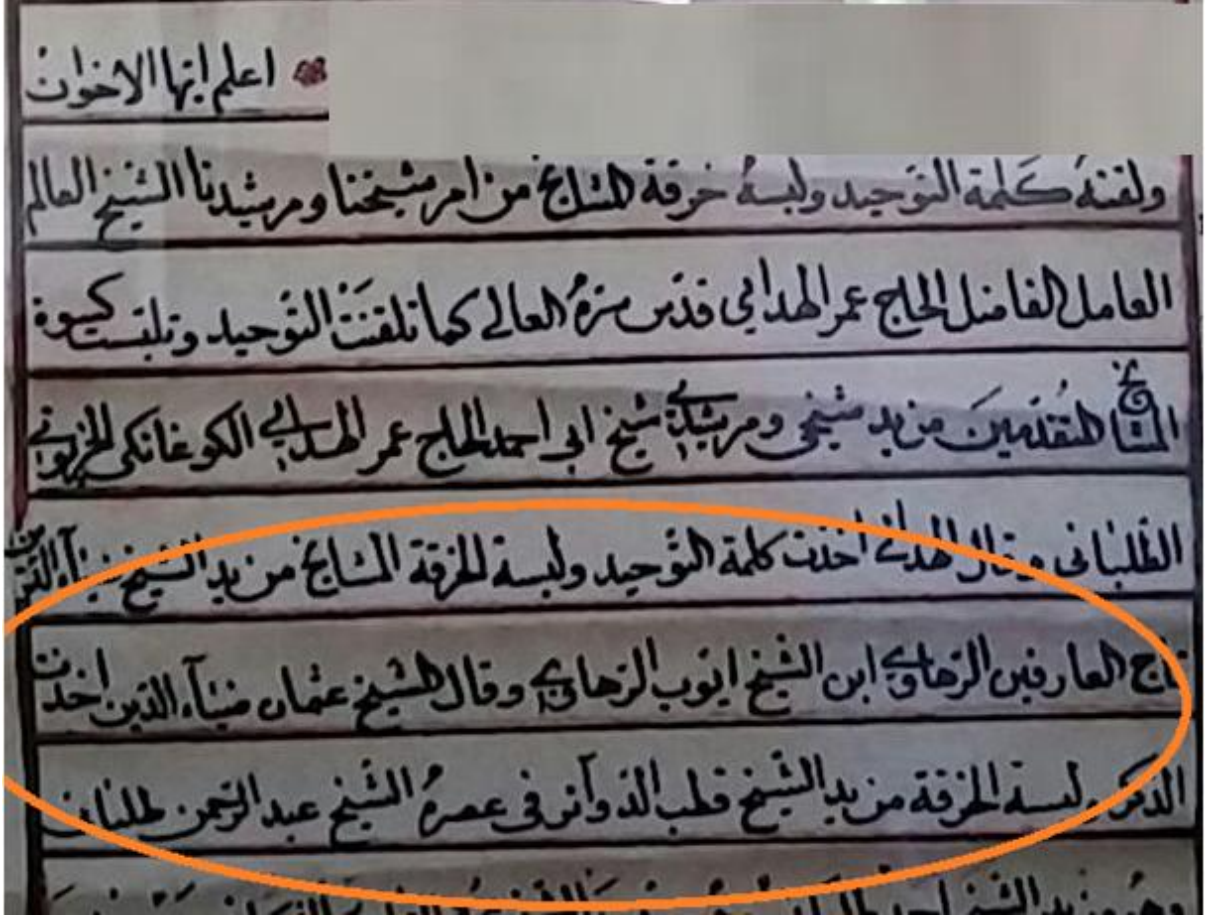 اعلم ايها الاخوان
ولقنته كلمة التوحيد ولبسة خرقة المشايخ من امر شيخنا ومرشدنا الشيخ العالم
العامل الفاضل الحاج عمر الهدايي قدس سره العالي كما تلقنت التوحيد وتلبست كسوة
المشايخ المتقدمين من يد شيخي ومرشدي شيخ ابي احمد الحاج عمر الهدايي الكوغانكي الخربوتي
الطلباني وقال اخذت كلمة التوحيد ولبسة الخرقة المشايخ من يد الشيخ ضيآء الدين
تاج العارفين الرهاوي ابن الشيخ ايوب الرهاوي وقال الشيخ عثمان ضيآء الدين اخذت
الذكر ولبسة الخرقة من يد الشيخ قطب الدوآئر في عصره الشيخ عبد الرحمن طلباني